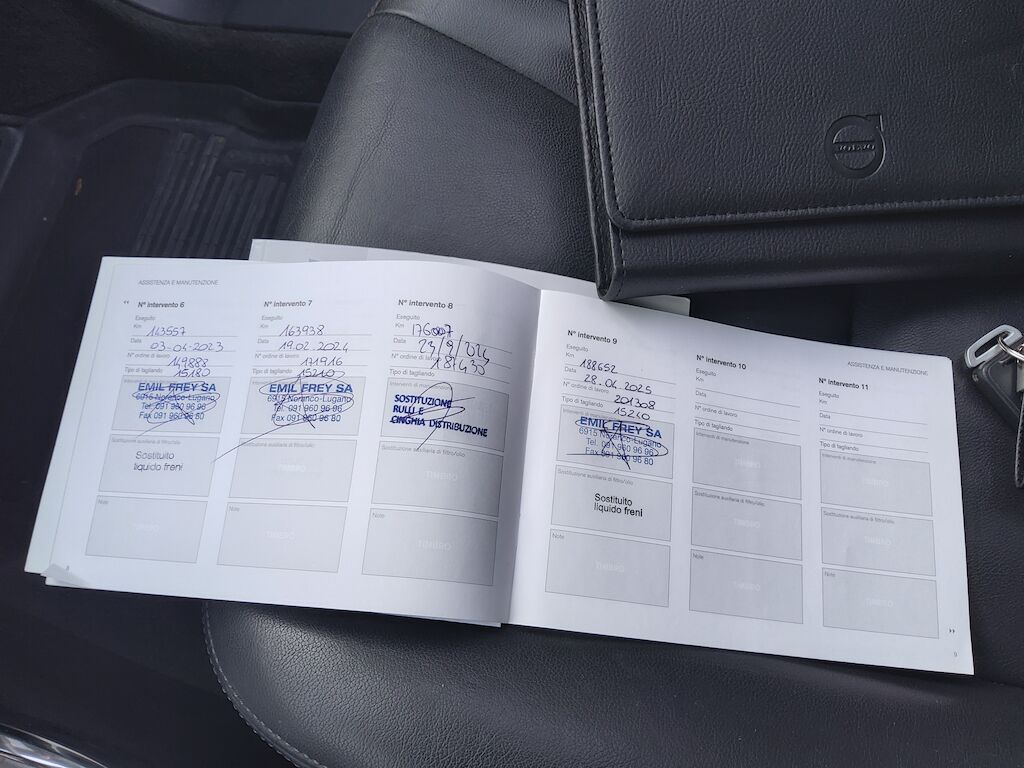 VOLVO
ASSISTENZA E MANUTENZIONE
N° intervento 6
Eseguito
Km 143557
Data 03-04-2023
N° ordine di lavoro
149888
Tipo di tagliando 15180
EMIL FREY SA
6915 Noranco-Lugano
Tel. 091 960 96 96
Fax 091 960 96 80
Sostituzione ausiliaria di filtro/olio
Sostituito
liquido freni
Note
TIMBRO
N° intervento 7
Eseguito
Km 163938
Data 19.02.2024
N° ordine di lavoro
171916
Tipo di tagliando 15210
EMIL FREY SA
6915 Noranco-Lugano
Tel. 091 960 96 96
Fax 091 960 96 80
Sostituzione ausiliaria di filtro/olio
TIMBRO
Note
TIMBRO
N° intervento 8
Eseguito
Km 176007
Data 23/9/2024
N° ordine di lavoro
187433
Tipo di tagliando
Interventi di manutenzione
SOSTITUZIONE
RULLI E
CINGHIA DISTRIBUZIONE
Sostituzione ausiliaria di filtro/olio
TIMBRO
Note
TIMBRO
N° intervento 9
Eseguito
Km 188652
Data 28.04.2025
N° ordine di lavoro
201308
Tipo di tagliando 15240
Interventi di manutenzione
EMIL FREY SA
6915 Noranco-Lugano
Tel. 091 960 96 96
Fax 091 960 96 80
Sostituzione ausiliaria di filtro/olio
Sostituito
liquido freni
Note
TIMBRO
N° intervento 10
Eseguito
Km
Data
N° ordine di lavoro
Tipo di tagliando
Interventi di manutenzione
TIMBRO
Sostituzione ausiliaria di filtro/olio
TIMBRO
Note
TIMBRO
ASSISTENZA E MANUTENZIONE
N° intervento 11
Eseguito
Km
Data
N° ordine di lavoro
Tipo di tagliando
Interventi di manutenzione
TIMBRO
Sostituzione ausiliaria di filtro/olio
TIMBRO
Note
TIMBRO
9